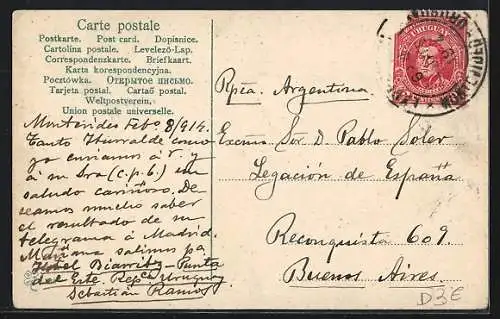 Carte postale
Postkarte. Post card. Dopisnice.
Cartolina postale. Levelező-Lap.
Correspondenzkarte. Briefkaart.
Karta korespondencyjna.
Pocztówka. Открытое письмо.
Tarjeta postal. Cartaõ postal.
Weltpostverein.
Union postale universelle.
URUGUAY
Montevideo Febº 8/914.
Tanto Iturralde como
yo enviamos á V. y
á su Sra (c.p.b.) un
saludo cariñoso. De-
seamos mucho saber
el resultado de su
telegrama á Madrid.
Mañana salimos pa
Hotel Biarritz - Punta
del Este. Repca Uruguay
Sebastián Ramos
Rpca. Argentina
Excmo. Sor D Pablo Soler
Legación de España
Reconquista 609.
Buenos Aires
D3E